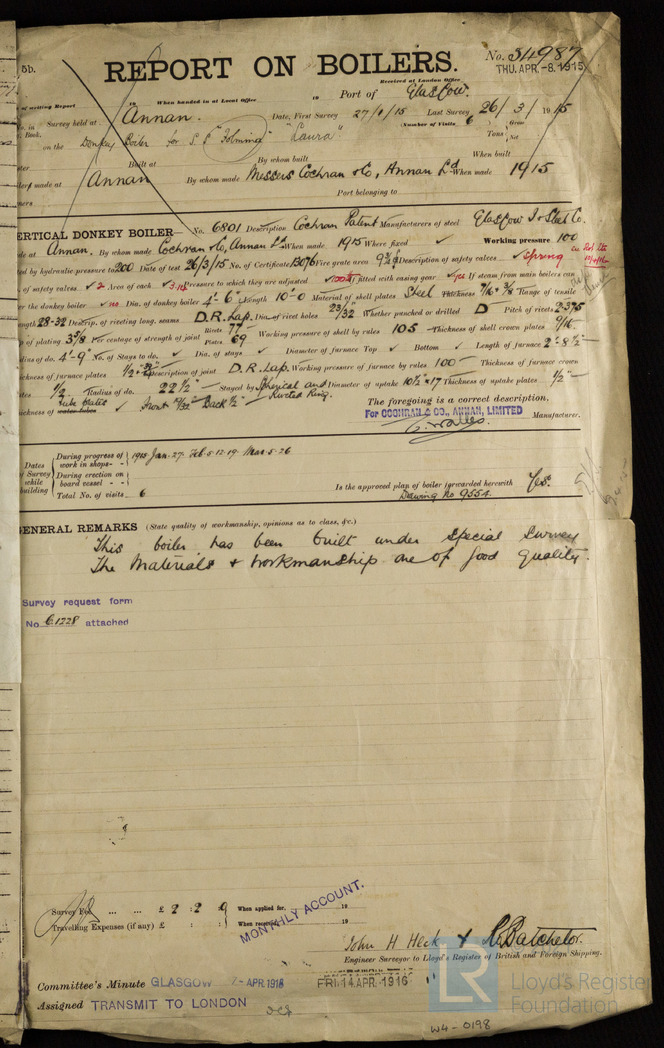 5b.
REPORT ON BOILERS.
No. 34987
Received at London Office
THU. APR -8. 1915
of writing Report
When handed in at Local Office
Port of Glasgow.
in Survey held at Annan.
Date, First Survey 27/1/15 Last Survey 26/3/1915
Book.
(Number of Visits 6
on the Donkey Boiler for S.S. "Laura".
Tons Gross Net
Built at By whom built When built
made at Annan By whom made Messrs Cochran & Co, Annan Ld When made 1915
Port belonging to
ERTICAL DONKEY BOILER— No. 6801 Description Cochran Patent Manufacturers of steel Glasgow I & Steel Co.
de at Annan. By whom made Cochran & Co, Annan Ld When made 1915 Where fixed ✓ Working pressure 100
ted by hydraulic pressure to 200 Date of test 26/3/15 No. of Certificate 13076 Fire grate area 9¾ Description of safety valves ✓ Spring
of safety valves ✓ 2 Area of each ✓ Pressure to which they are adjusted fitted with easing gear ✓ yes If steam from main boilers can
r the donkey boiler ✓ no Dia. of donkey boiler 4'-6" Length 10-0 Material of shell plates Steel Thickness 7/16 + 3/8 Range of tensile
ngth 28-32 Descrip. of riveting long. seams D.R. Lap. Dia. of rivet holes 23/32 Whether punched or drilled D Pitch of rivets 2.375
p of plating 3 5/8 Per centage of strength of joint Rivets 77 Plates 69 Working pressure of shell by rules 105 Thickness of shell crown plates 9/16
dius of do. 4'-9" No. of Stays to do. ✓ Dia. of stays ✓ Diameter of furnace Top ✓ Bottom ✓ Length of furnace 2'-8½"
ckness of furnace plates Description of joint D.R. Lap. Working pressure of furnace by rules 100 Thickness of furnace crown
tes ½ Radius of do. 22½" Stayed by Spherical and Riveted Ring. Diameter of uptake 10½ × 17 Thickness of uptake plates ½"
ckness of water tubes Tube plates ✓ Front 19/32" Back ½"
The foregoing is a correct description,
For COCHRAN & CO., ANNAN, LIMITED Manufacturer.
Dates of Survey while building
During progress of work in shops - - 1915 Jan. 27. Feb. 5. 12. 19. Mar. 5. 26
During erection on board vessel - - -
Total No. of visits 6
Is the approved plan of boiler forwarded herewith Yes.
Drawing No 9554.
ENERAL REMARKS (State quality of workmanship, opinions as to class, &c.)
This boiler has been built under special survey
The materials & workmanship are of good quality.
Survey request form
No. C.1228 attached
Survey Fee ... ... £ 2 : 2 : 9 When applied for, 19
Travelling Expenses (if any) £ : : When received, 19
MONTHLY ACCOUNT.
John H Heck & Batchelor.
Engineer Surveyor to Lloyd's Register of British and Foreign Shipping.
Committee's Minute GLASGOW 7-APR.1915 FRI. 14 APR. 1916
Assigned TRANSMIT TO LONDON
LR Lloyd's Register Foundation
W4-0198